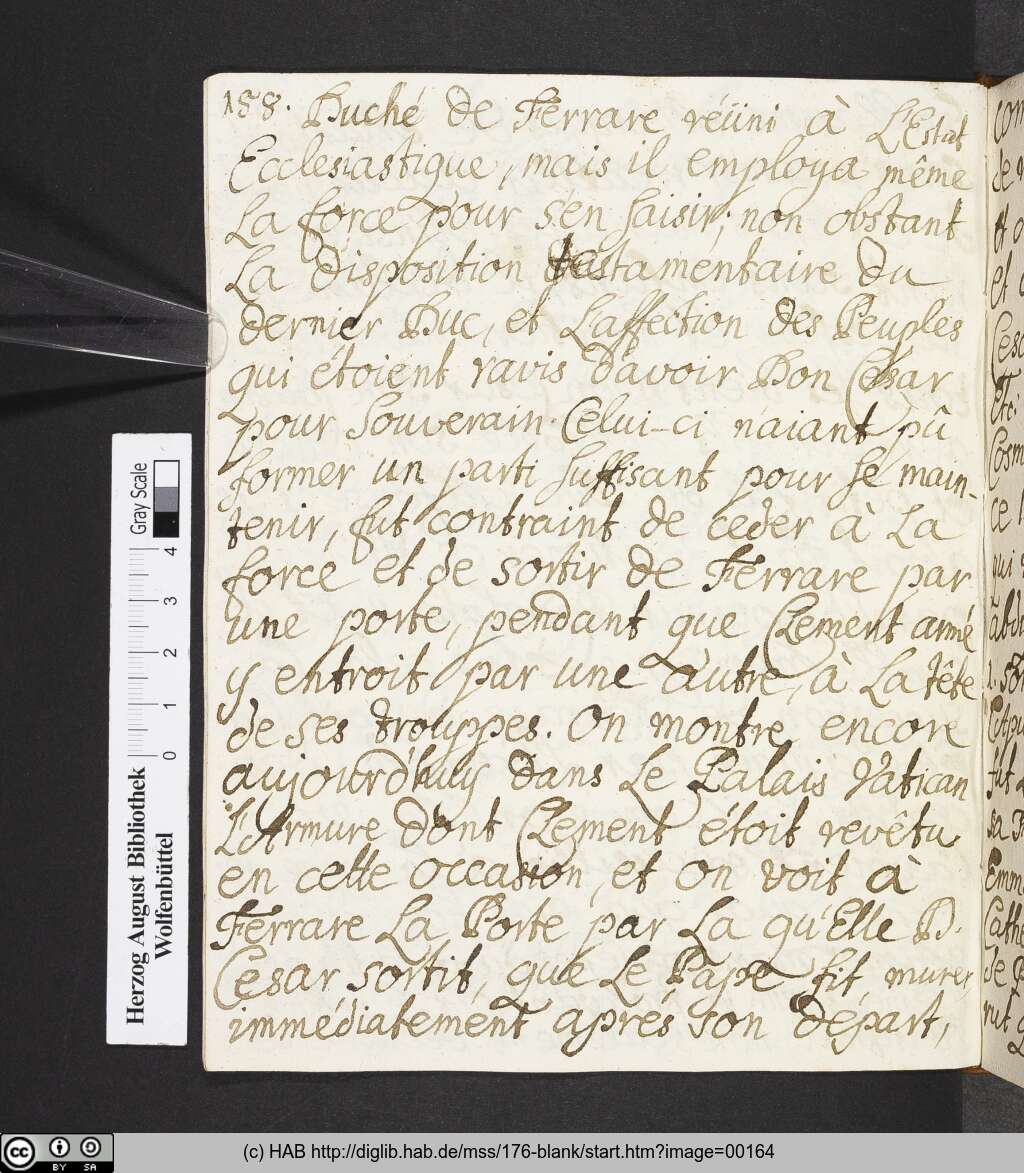 158. Duché de Ferrare réüni à L'Estat
Ecclesiastique, mais il employa même
La force pour s'en saisir; non obstant
La disposition testamentaire du
dernier Duc, et L'affection des Peuples
qui étoient ravis d'avoir Don Cesar
pour Souverain. Celui-ci n'aiant pû
former un parti suffisant pour se main-
tenir, fut contraint de ceder à La
force et de sortir de Ferrare par
une porte, pendant que Clement armé
y entroit par une autre, à La tête
de ses trouppes. On montre encore
aujourd'huy dans Le Palais Vatican
L'Armure dont Clement étoit revêtu
en cette occasion, et on voit à
Ferrare La Porte par La qu'Elle D.
Cesar sortit, que Le Pape fit murer,
immédiatement aprés son départ,
Herzog August Bibliothek
Wolfenbüttel
Gray Scale
0 1 2 3 4
(c) HAB http://diglib.hab.de/mss/176-blank/start.htm?image=00164
cc BY SA